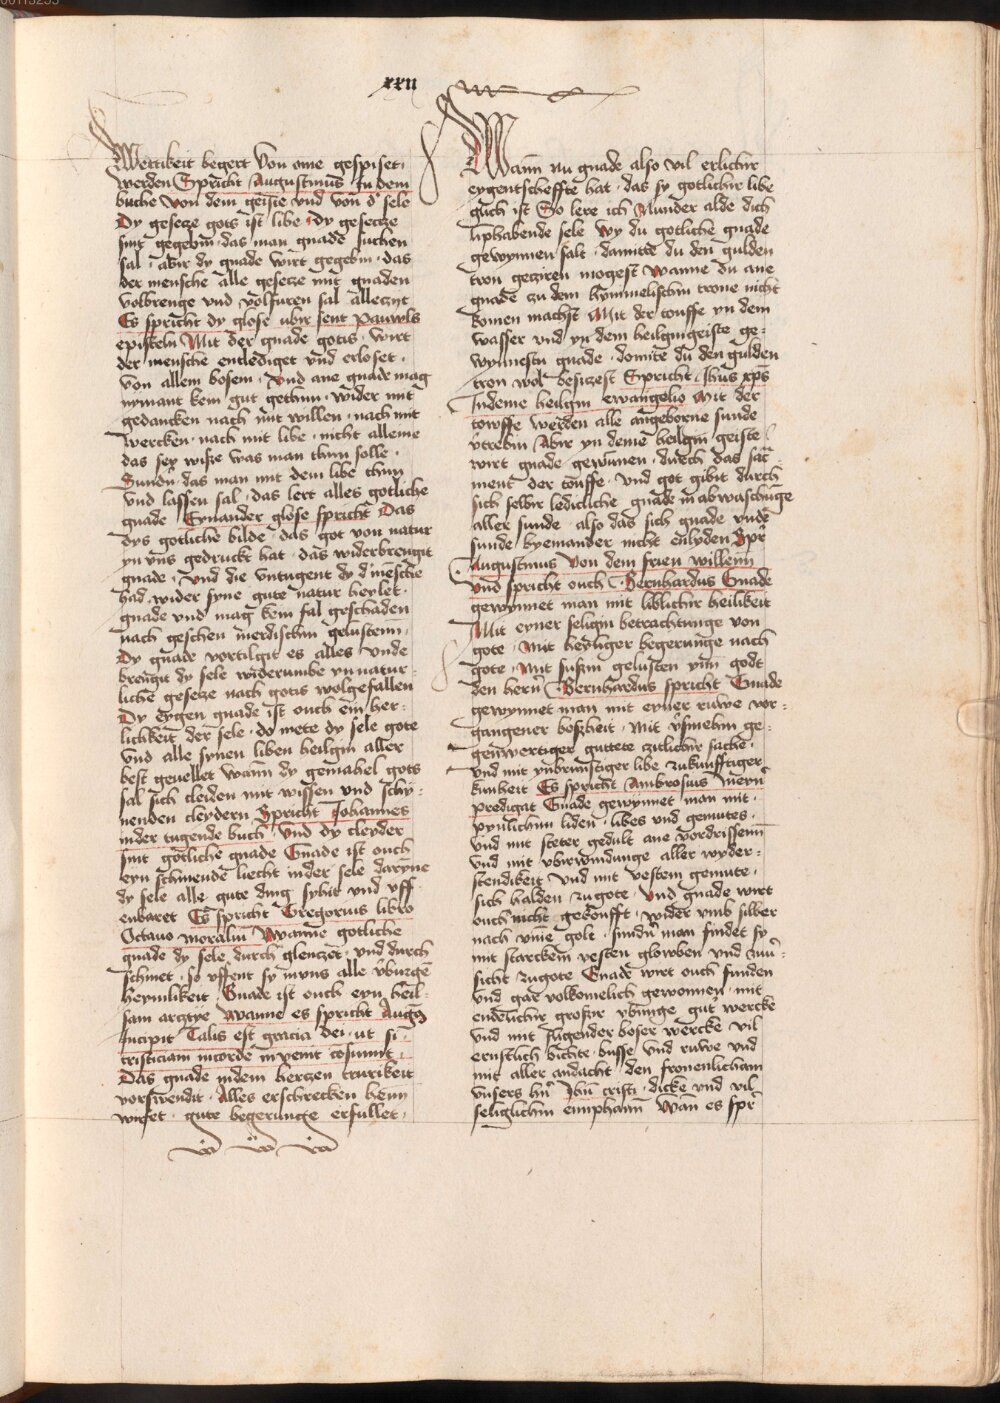 xxii
Mettikeit begert von ome gespiset
werden Spricht Augustinus In dem
buche von dem geiste vnd von d' sele
Dy gesetze gots ist libe · dy gesetze
sint gegebin · das man gnade suchen
sal · abir dy gnade wirt gegebin · das
der mensche alle gesetze mit gnaden
volbrenge vnd volfuren sal alleczyt
Es spricht dy glose vbir sent pauwls
episteln Mit der gnade gotis · wirt
der mensche entlediget vnd erloset ·
von allem bosem · Vnd ane gnade mag
nymant kein gut gethun · wider mit
gedancken nach mit willen · nach mit
wercken · nach mit libe · nicht alleine
das sey wisze was man thun solle ·
Sundir das man mit dem libe thun
vnd lassen sal · das lert alles gotliche
gnade Eynander glose spricht Das
dys gotliche bilde · das got von natur
yn vns gedruckt hat · das widerbrenget
gnade · Vnd die vntugent dy d' mensche
had wider syne gute natur heylet ·
gnade vnd mag kein fal geschaden
nach geschen
Dy gnade vortilgit es alles vnde
brenget dy sele widerumbe yn natur-
liche gesetze nach gotis wolgefallen
Dy eygen gnade ist ouch ein her-
lichkeit der sele · do mete dy sele gote
vnd alle synen liben heilgin aller
best geuellet wann dy gemahel gots
sal sich cleiden mit wissen vnd schy-
nenden cleydern Spricht Johannes
inder tugende buch Vnd dy cleyder
sint gotliche gnade Gnade ist ouch
eyn schinende liecht inder sele daryne
dy sele alle gute ding sybit vnd vff
enbaret Es spricht Gregorius libro
Octauo moraliu Wanne gotliche
gnade dy sele durch glenczet · vnd durch
schinet · so vffent sy inuns alle vbirge
heymlikeit · Gnade ist ouch eyn heil-
sam arcztye Wanne es spricht Augs
Incipit Talis est gracia dei · ut si
tristiciam incorde inuenit cosumit ·
Das gnade indem hertzen trurikeit
vorswendit · Alles erschrecken henn
wirfet · gute begerunge erfullet ·
Wann nu gnade also vil erlicher
eygentscheffte hat · das sy gotlicher libe
glich ist So lere ich Nunder alde dich
liphabende sele wy du gotliche gnade
gewynnen salt · damitte du den gulden
tron getziren mogest Wanne du ane
gnade zu dem hymmelischin trone nicht
komen machst Mit der touffe yn dem
wasser vnd yn dem heilgingeiste ge-
wynnestu gnade · domite du den gulden
tron wol besitzest Spricht Ihus xps
Indeme heilgin ewangelio Mit der
towffe werden alle angeborne sunde
vtrebin Abir yn deme heilgin geiste
wirt gnade gewunnen · durch das sac
ment der touffe · vnd got gibit durch
sich selbir ledicliche gnade in abwaschunge
aller sunde · also das sich gnade vnde
sunde byeinander nicht enlyden Spr
Augustinus Von dem frien willenn
vnd spricht ouch Bernhardus Gnade
gewynnet man mit liblicher heilikeit
Mit eyner seligin betrachtunge von
gote · Mit heyliger begerunge nach
gote · Mit susin gelusten ynn godt
den hern Bernhardus spricht Gnade
gewynnet man mit eyner ruwe vor-
gangener boszheit · Mit ge-
genwertiger guttete zitlicher sache ·
vnd mit ynbrunstiger libe zukunfftiger
kunheit Es spricht Ambrosius
predigat Gnade gewynnet man mit ·
pynlichim liden · libes vnd gemutes ·
vnd mit steter gedult ane vordrissenn
vnd mit vbirwindunge aller wyder-
stendikeit vnd mit vestem gemute ·
sich halden zugote · Vnd gnade wirt
ouch nicht gekoufft · wider vmb silber
nach vme golt · sundir man findet sy
mit starckem vesten glowben vnd zuu-
sicht zugote Gnade wirt ouch funden
vnd gar volkomelich gewonnen · mit
endelicher groszir vbunge gut wercke
vnd mit flugender boser wercke vil
ernstlich bichte · busse vnd ruwe vnd
mit aller andacht den fronenlicham
vnsers hn Ihu cristi · dicke vnd vil
seliglichin entphann Wan es spr